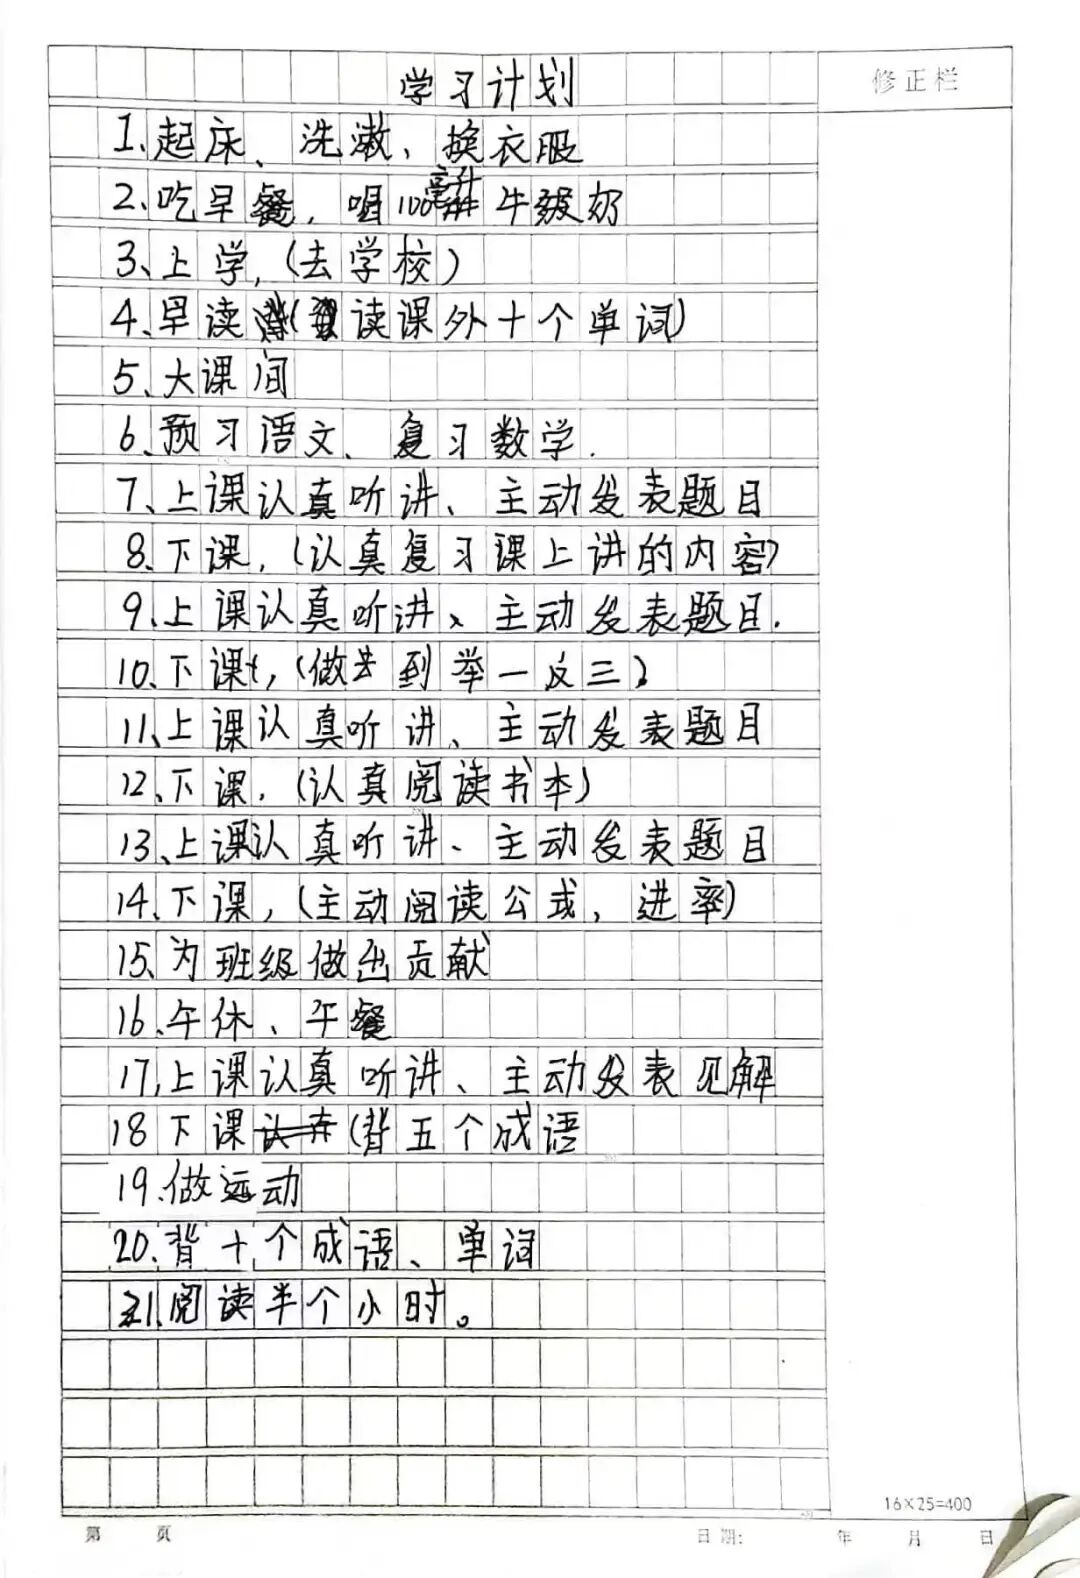 学习计划
修正栏
1、起床、洗漱、换衣服
2、吃早餐，喝100毫升牛奶
3、上学，(去学校)
4、早读(读课外十个单词)
5、大课间
6、预习语文、复习数学.
7、上课认真听讲、主动发表题目
8、下课，(认真复习课上讲的内容)
9、上课认真听讲、主动发表题目.
10、下课，(做到举一反三)
11、上课认真听讲、主动发表题目
12、下课，(认真阅读书本)
13、上课认真听讲、主动发表题目
14、下课，(主动阅读公式，进率)
15、为班级做出贡献
16、午休、午餐
17、上课认真听讲、主动发表见解
18下课(背五个成语
19、做运动
20、背十个成语、单词
21、阅读半个小时。
16×25=400
第 页 日期: 年 月 日